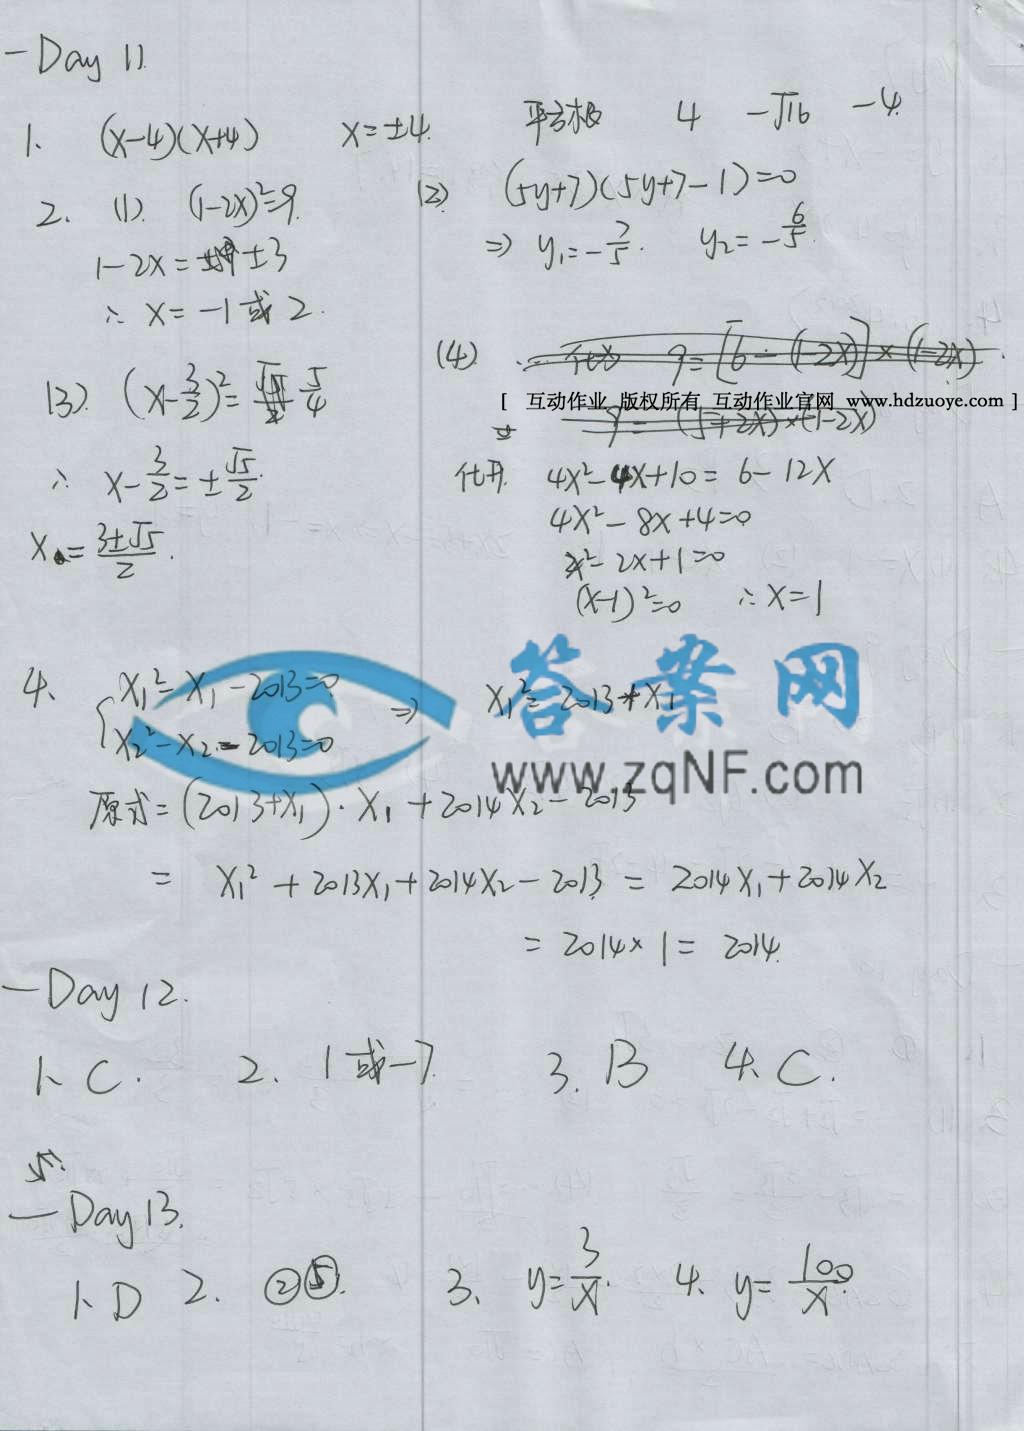 一Day 11.
1、 (x-4)(x+4) x=±4. 平方根 4 -√16 -4.
2. (1). (1-2x)²=9. (2) (5y+7)(5y+7-1)=0
1-2x= ±3 ⇒ y₁=-7/5. y₂=-6/5.
∴ x=-1或2.
(3). (x-3/2)²= 5/4
(4). 9=[6-(1-2x)]×(1-2x).
[ 互动作业 版权所有 互动作业官网 www.hdzuoye.com ]
9= (5+2x)×(1-2x)
∴ x-3/2=±√5/2. 4x²-4x+10=6-12x
4x²-8x+4=0
x=(3±√5)/2. x²-2x+1=0
(x-1)²=0 ∴x=1
4、 x₁²-x₁-2013=0 ⇒ x₁²=2013+x₁
x₂²-x₂-2013=0
答案网
www.zqNF.com
原式=(2013+x₁)·x₁+2014x₂-2013
= x₁²+2013x₁+2014x₂-2013 = 2014x₁+2014x₂
= 2014×1= 2014.
一Day 12.
1、C. 2. 1或-7. 3. B 4、C.
5.
一Day 13.
1、D 2. ②⑤. 3、 y=3/x. 4、 y=100/x.